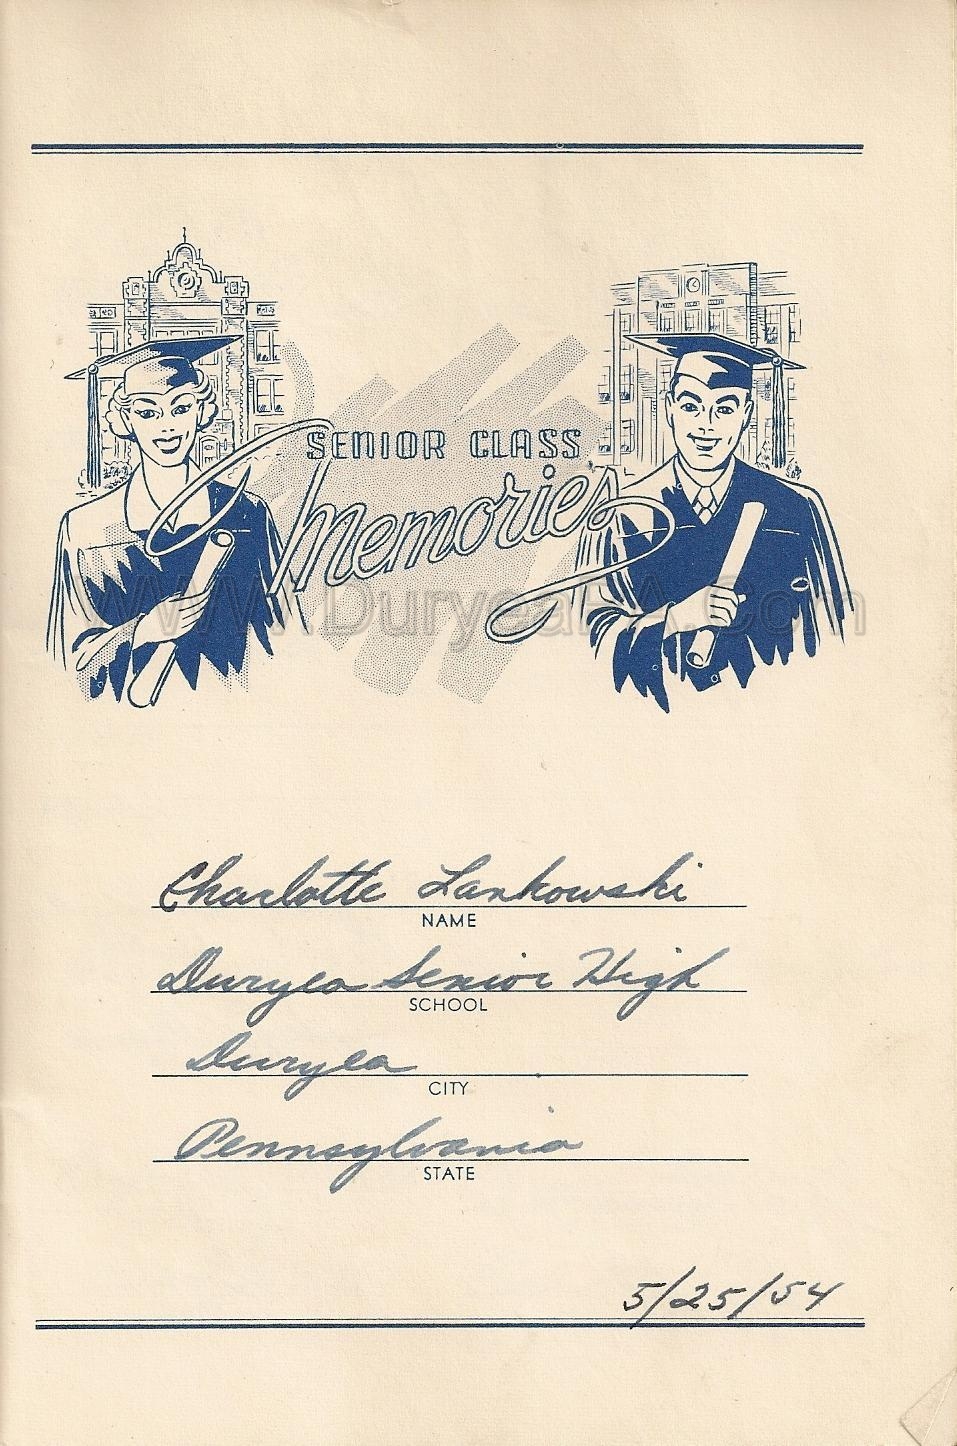 SENIOR CLASS
Memories
www.DuryeaPA.Com
Charlotte Lankowski
NAME
Duryea Senior High
SCHOOL
Duryea
CITY
Pennsylvania
STATE
5/25/54